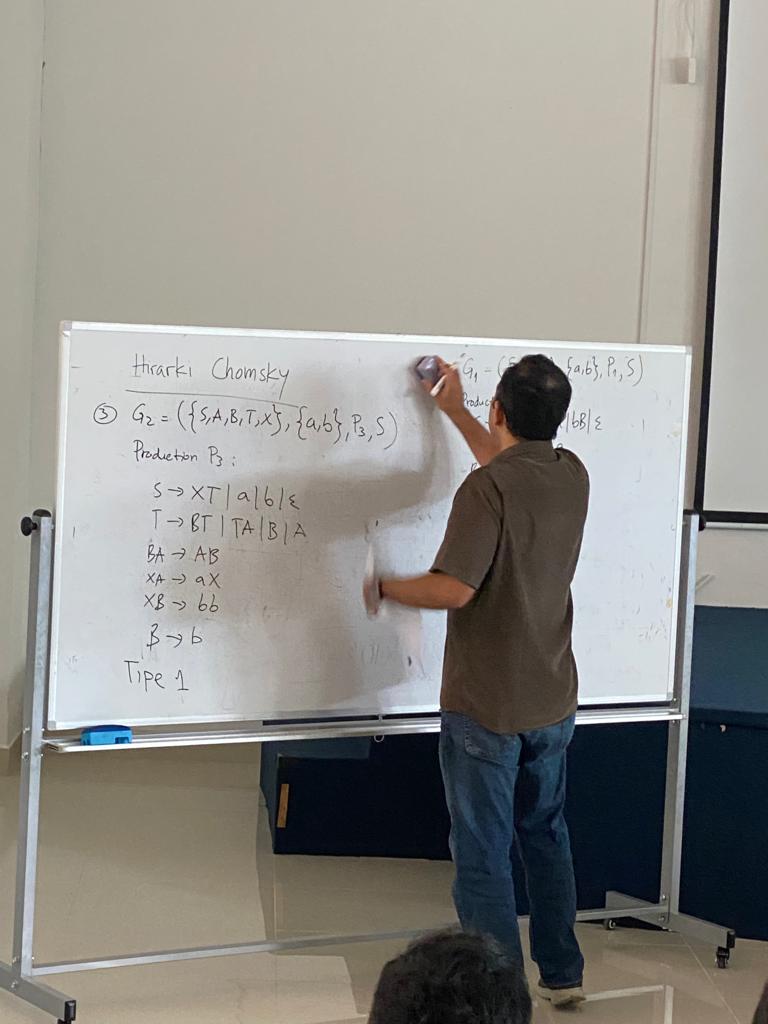 Hirarki Chomsky
③ G₂ = ({S,A,B,T,X}, {a,b}, P₃, S)
Production P₃ :
S → XT | a | b | ε
T → BT | TA | B | A
BA → AB
XA → aX
XB → bb
B → b
Tipe 1
G₁ = ( {a,b}, P₁, S)
| bB | ε